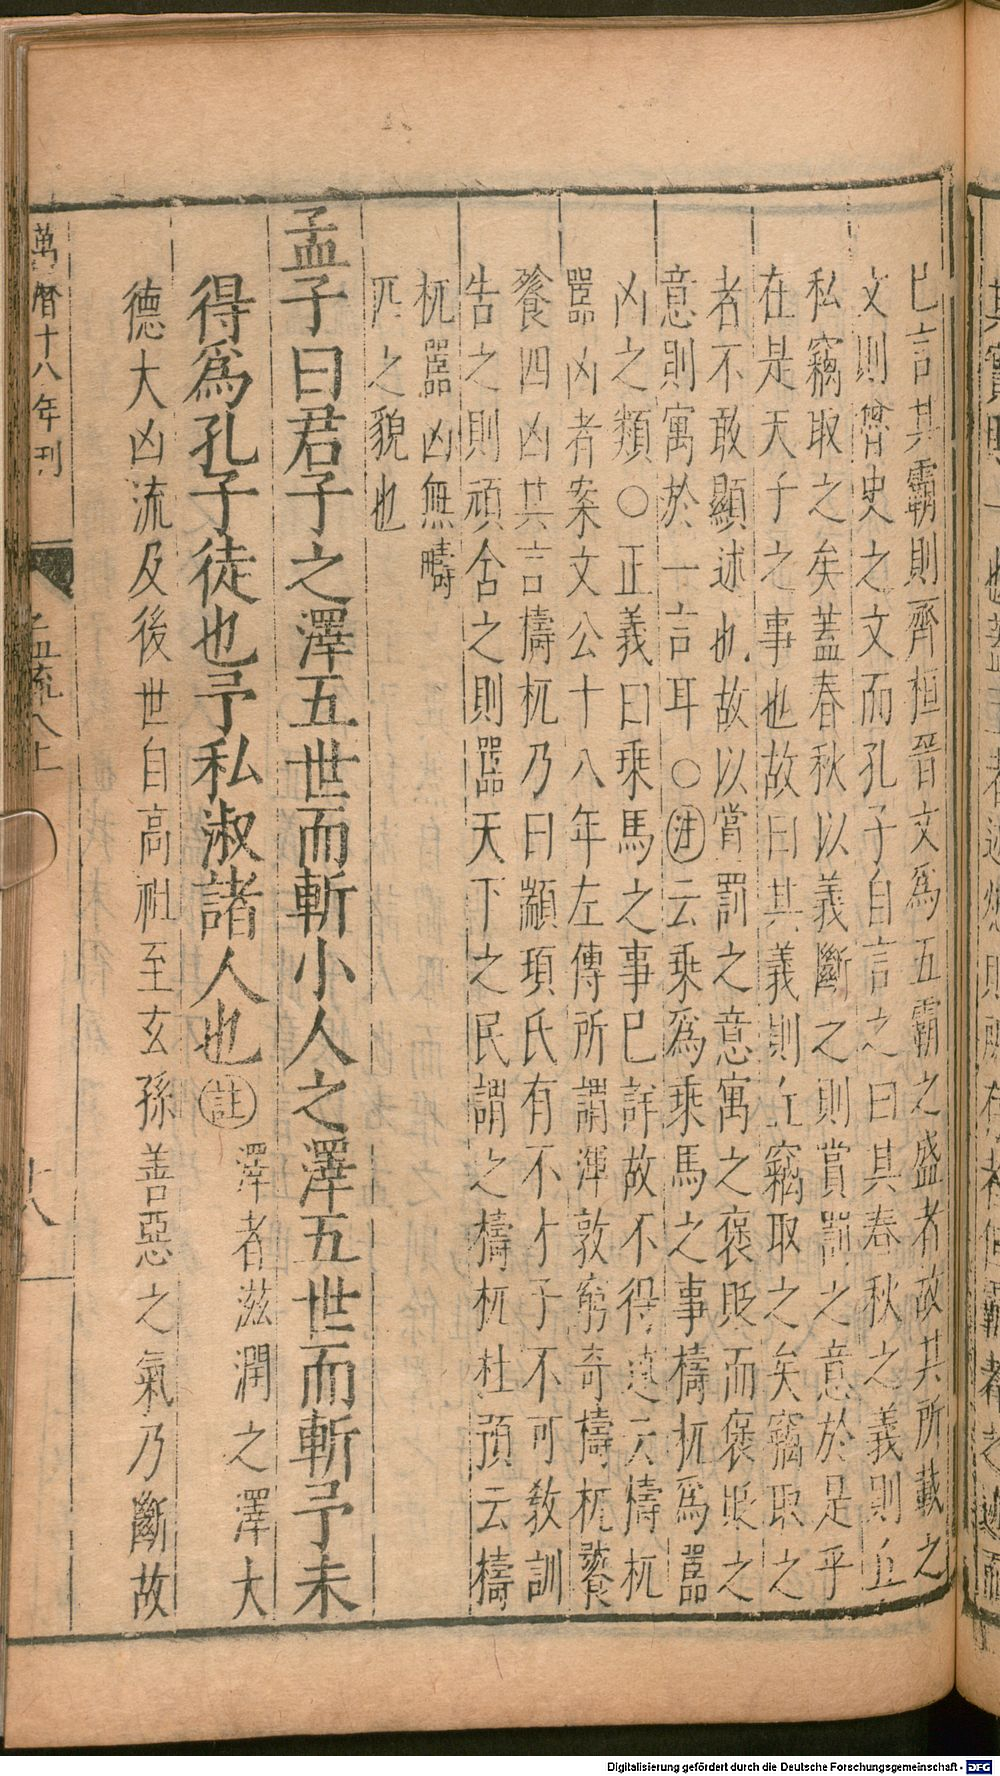 已言其霸則齊桓晉文為五霸之盛者故其所載之
文則魯史之文而孔子自言之曰其春秋之義則丘
私竊取之矣蓋春秋以義斷之則賞罰之意於是乎
在是天子之事也故曰其義則丘竊取之矣竊取之
者不敢顯述也故以賞罰之意寓之褒貶而褒貶之
意則寓於一言耳○注云乘為乘馬之事檮杌為嚚
凶之類○正義曰乘馬之事已詳故不得述云檮杌
嚚凶者案文公十八年左傳所謂渾敦窮奇檮杌饕
餮四凶其言檮杌乃曰顓頊氏有不才子不可教訓
告之則頑舍之則嚚天下之民謂之檮杌杜預云檮
杌嚚凶無疇
匹之貌也
孟子曰君子之澤五世而斬小人之澤五世而斬予未
得為孔子徒也予私淑諸人也註澤者滋潤之澤大
德大凶流及後世自高祖至玄孫善惡之氣乃斷故
萬曆十八年刊 孟疏八上 十八
Digitalisierung gefördert durch die Deutsche Forschungsgemeinschaft - DFG